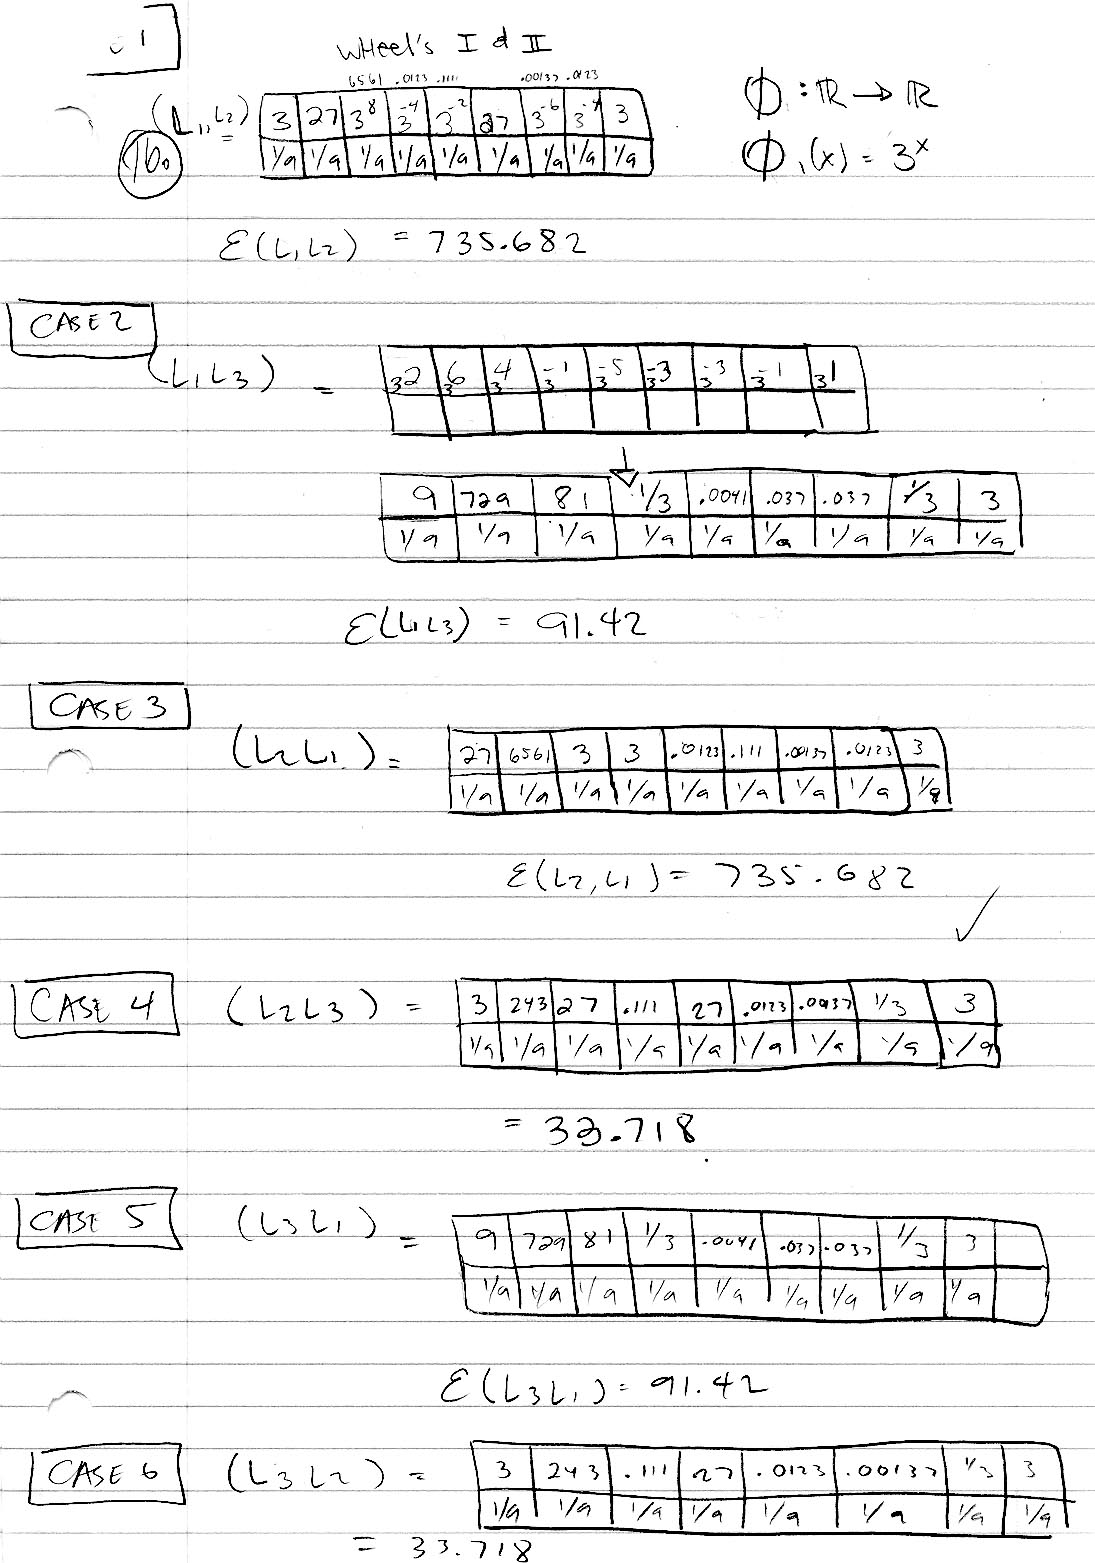 1
WHeel's I & II
6561 .0123 .1111 .00137 .0123
(L1,L2) = 3 27 3^8 3^-4 3^-2 27 3^-6 3^-4 3
1/9 1/9 1/9 1/9 1/9 1/9 1/9 1/9 1/9
16.
Φ : ℝ → ℝ
Φ1(x) = 3^x
E(L1L2) = 735.682
CASE 2
(L1L3) = 3^2 3^6 3^4 3^-1 3^-5 3^-3 3^-3 3^-1 3^1
↓
9 729 81 1/3 .0041 .037 .037 1/3 3
1/9 1/9 1/9 1/9 1/9 1/9 1/9 1/9 1/9
E(L1L3) = 91.42
CASE 3
(L2L1) = 27 6561 3 3 .0123 .111 .00137 .0123 3
1/9 1/9 1/9 1/9 1/9 1/9 1/9 1/9 1/9
E(L2,L1) = 735.682
✓
CASE 4 (L2L3) = 3 243 27 .111 27 .0123 .00137 1/3 3
1/9 1/9 1/9 1/9 1/9 1/9 1/9 1/9 1/9
= 33.718
CASE 5 (L3L1) = 9 729 81 1/3 .0041 .037 .037 1/3 3
1/9 1/9 1/9 1/9 1/9 1/9 1/9 1/9 1/9
E(L3L1) = 91.42
CASE 6 (L3L2) = 3 243 .111 27 .0123 .00137 1/3 3
1/9 1/9 1/9 1/9 1/9 1/9 1/9 1/9
= 33.718